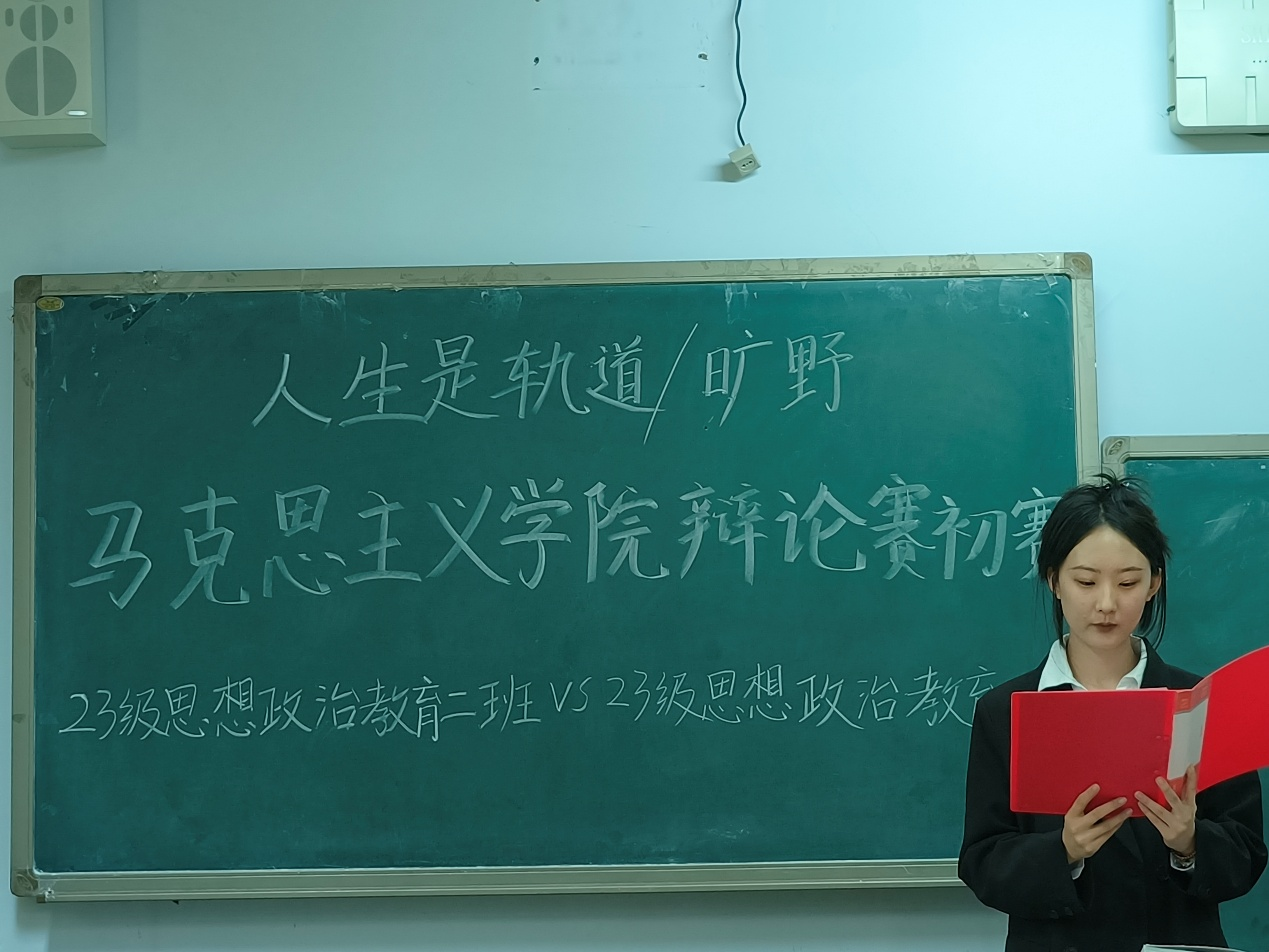 人生是轨道/旷野
马克思主义学院辩论赛初赛
23级思想政治教育二班 VS 23级思想政治教育